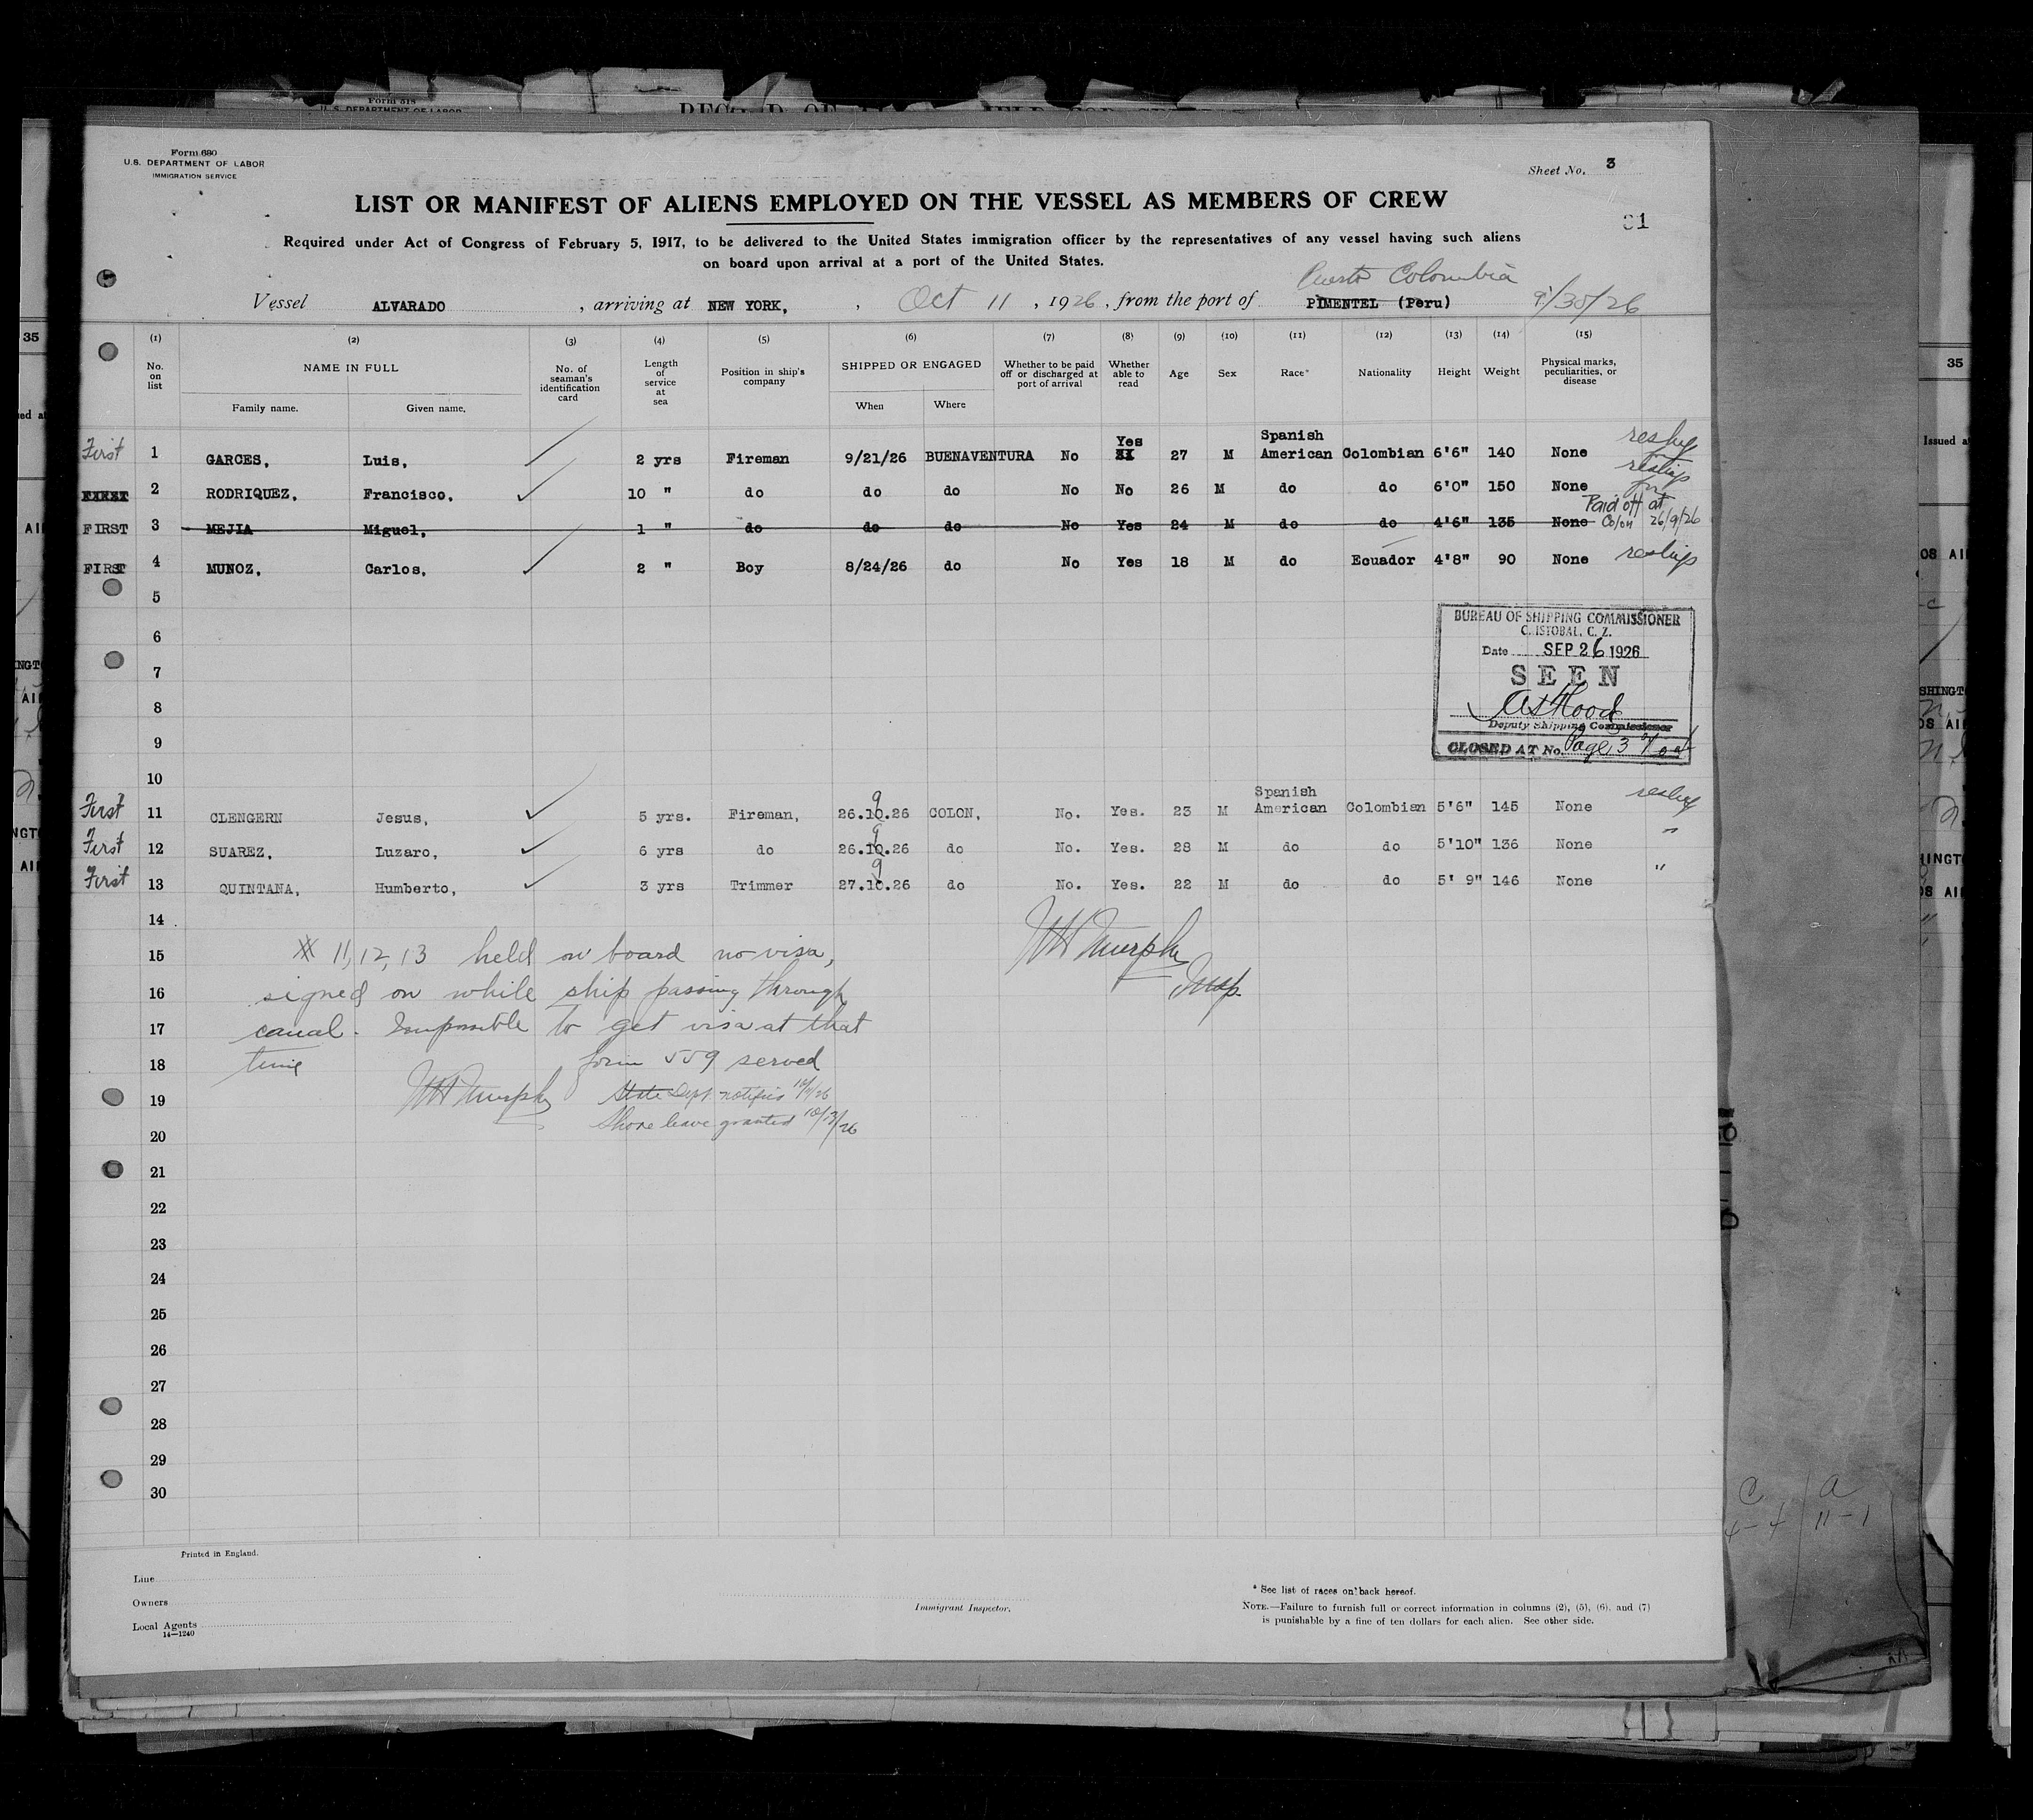 Form 680
U.S. DEPARTMENT OF LABOR
IMMIGRATION SERVICE
Sheet No. 3
LIST OR MANIFEST OF ALIENS EMPLOYED ON THE VESSEL AS MEMBERS OF CREW
31
Required under Act of Congress of February 5, 1917, to be delivered to the United States immigration officer by the representatives of any vessel having such aliens
on board upon arrival at a port of the United States.
Puerto Colombia
Vessel ALVARADO , arriving at NEW YORK, , Oct 11 , 1926, from the port of PIMENTEL (Peru) 9/30/26
(1) (2) (3) (4) (5) (6) (7) (8) (9) (10) (11) (12) (13) (14) (15)
No. on list NAME IN FULL Family name. Given name. No. of seaman's identification card Length of service at sea Position in ship's company SHIPPED OR ENGAGED When Where Whether to be paid off or discharged at port of arrival Whether able to read Age Sex Race* Nationality Height Weight Physical marks, peculiarities, or disease
First 1 GARCES, Luis, 2 yrs Fireman 9/21/26 BUENAVENTURA No Yes 27 M Spanish American Colombian 6'6" 140 None
FIRST 2 RODRIQUEZ, Francisco, 10 " do do do No No 26 M do do 6'0" 150 None
FIRST 3 MEJIA Miguel, 1 " do do do No Yes 24 M do do 4'6" 135 None Paid off at Colon 26/9/26
FIRST 4 MUNOZ, Carlos, 2 " Boy 8/24/26 do No Yes 18 M do Ecuador 4'8" 90 None
5
6
7
8
9
10
BUREAU OF SHIPPING COMMISSIONER
CRISTOBAL, C. Z.
Date SEP 26 1926
SEEN
Deputy Shipping Commissioner
CLOSED AT No. Page 3
First 11 CLENGERN Jesus, 5 yrs. Fireman, 26.10.26 9 COLON, No. Yes. 23 M Spanish American Colombian 5'6" 145 None
First 12 SUAREZ, Luzaro, 6 yrs do 26.10.26 9 do No. Yes. 28 M do do 5'10" 136 None "
First 13 QUINTANA, Humberto, 3 yrs Trimmer 27.10.26 9 do No. Yes. 22 M do do 5' 9" 146 None "
14
15 # 11, 12, 13 held on board no visa, Murphy
16 signed on while ship passing through Insp.
17 canal. Impossible to get visa at that
18 time form 559 served
19 Murphy State Dept notified
20 Shore leave granted 10/13/26
21
22
23
24
25
26
27
28
29
30
Printed in England.
Line
Owners
Local Agents
14—1240
Immigrant Inspector.
* See list of races on back hereof.
NOTE.—Failure to furnish full or correct information in columns (2), (5), (6), and (7)
is punishable by a fine of ten dollars for each alien. See other side.
C A
4-4 11-1